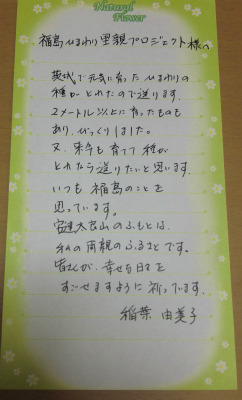 Natural
Flower
福島ひまわり里親プロジェクト様へ
茨城で元気に育ったひまわりの
種がとれたので送ります。
2メートル以上に育ったものも
あり、びっくりしました。
又、来年も育てて種が
とれたら送りたいと思います。
いつも福島のことを
思っています。
安達太良山のふもとは、
私の両親のふるさとです。
皆さんが、幸せな日々を
すごせますように祈っています。
稲葉 由美子